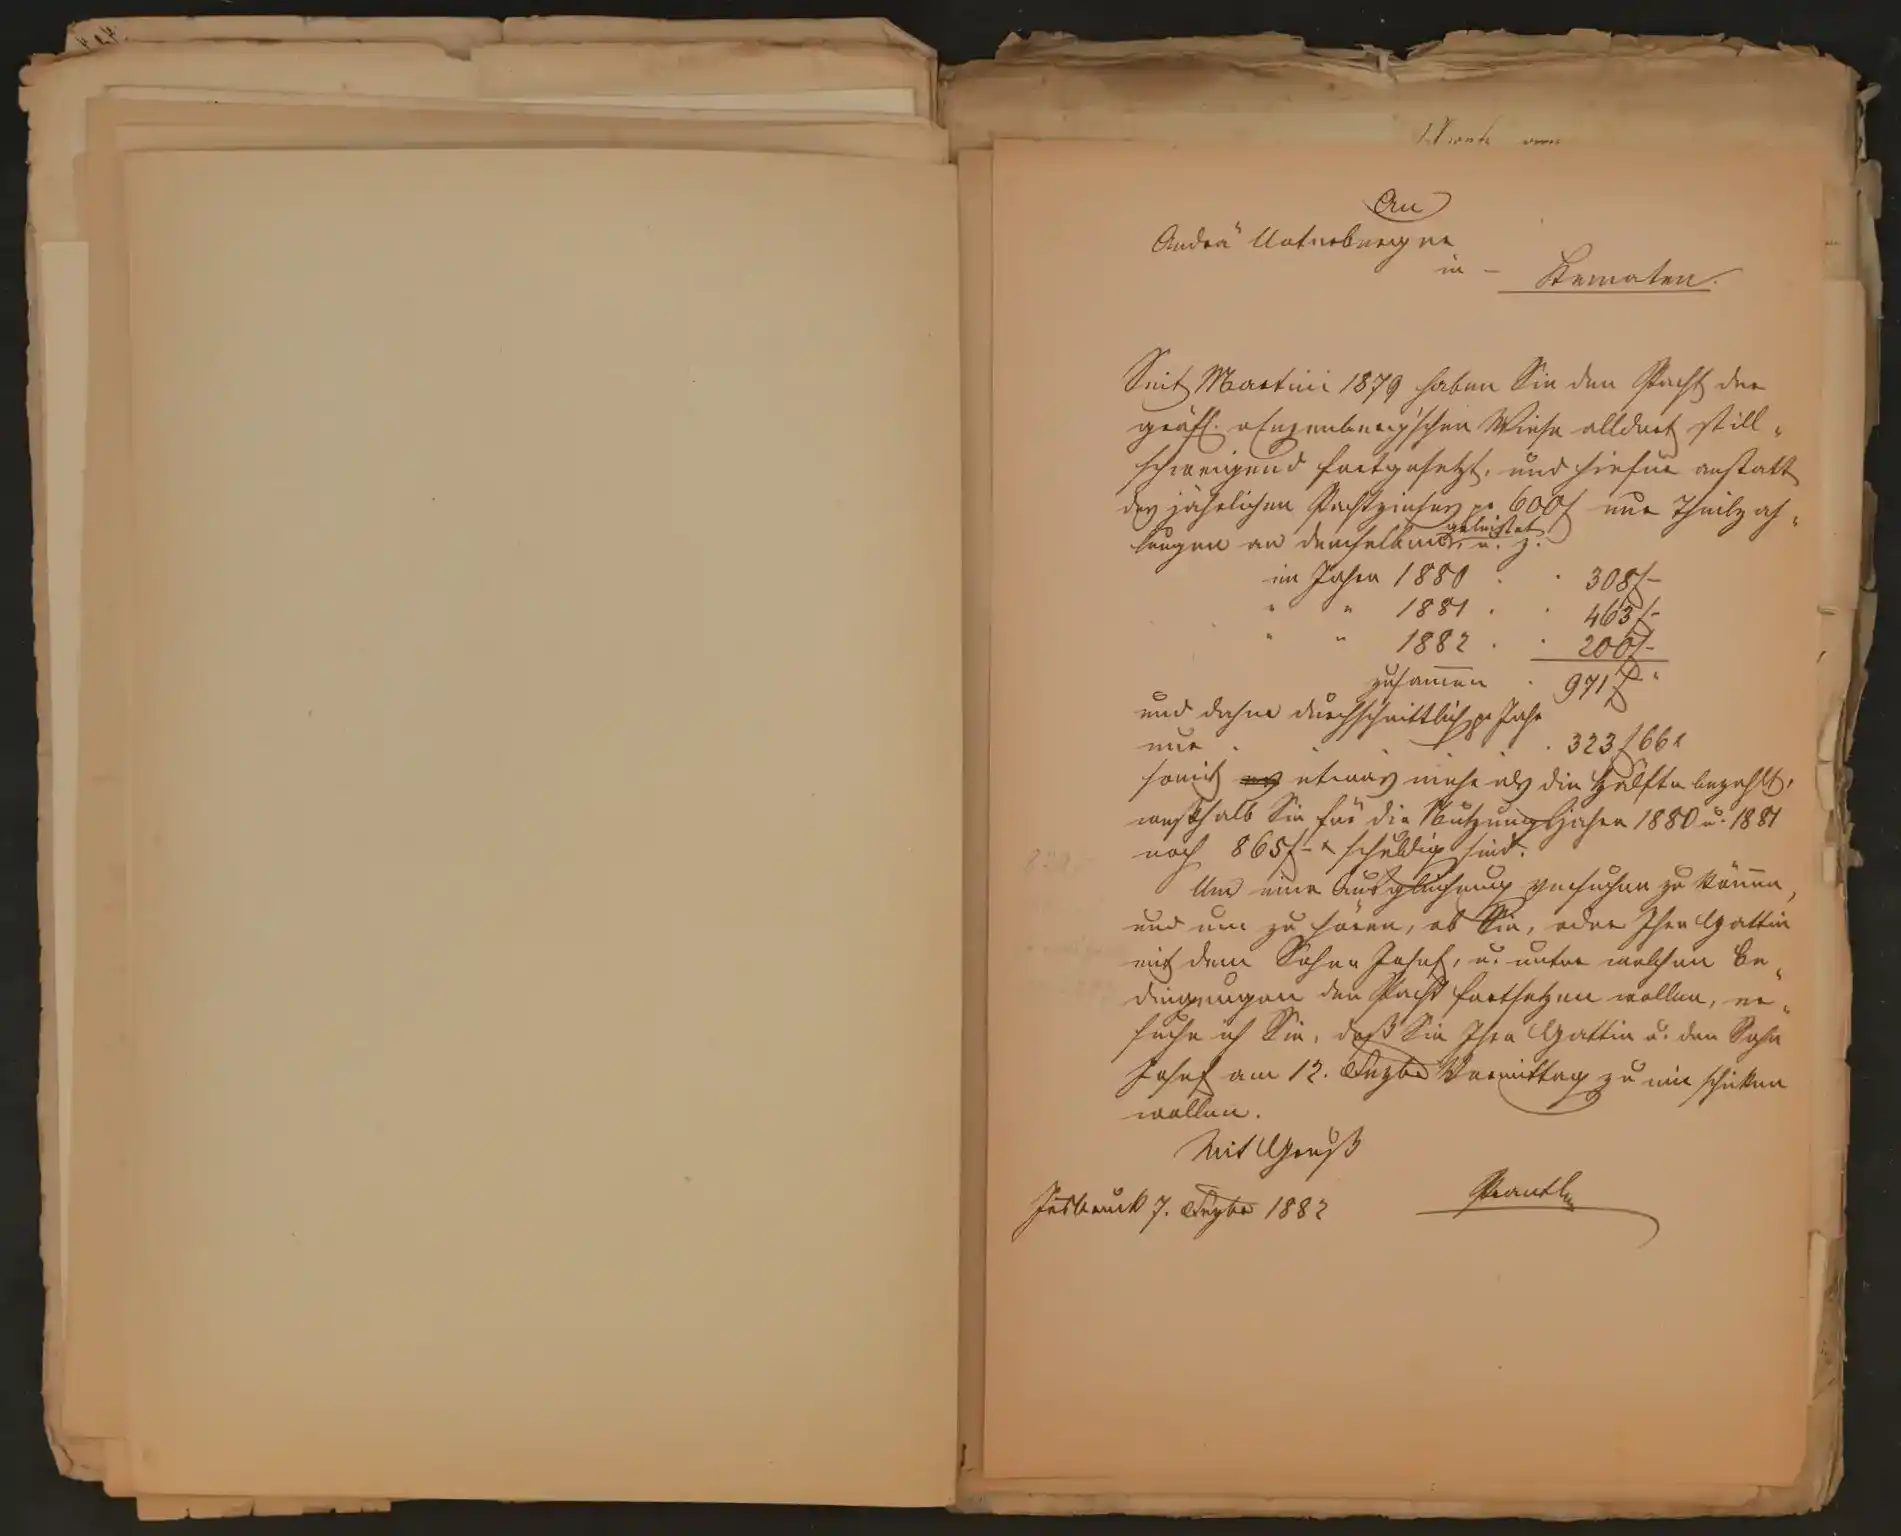 An
Andrä Unterberger
in - Kematen.
Seit Martini 1879 haben Sie den Pacht der
gräfl. Enzenberg'schen Wiese alldort still-
schweigend fortgesetzt, und hiefür anstatt
des jährlichen Pachtzinses pr 600 f nur Theilzah-
lungen an demselben geleistet, u. z.
im Jahre 1880 . . 308 f -
" " 1881 . . 463 f -
" " 1882 . . 200 f -
zusammen . 971 f "
und daher durchschnittlich pr Jahr
nur . . . 323 f 66 x
somit etwas mehr als die Hälfte bezahlt,
weßhalb Sie für die Nutzungsjahre 1880 u. 1881
noch 865 f - x schuldig sind.
Um eine Ausgleichung versuchen zu können,
und um zu hören, ob Sie, oder Ihre Gattin
mit dem Sohne Josef, u. unter welchen Be-
dingungen den Pacht fortsetzen wollen, er-
suche ich Sie, daß Sie Ihre Gattin u. den Sohn
Josef am 12. Dezbr Vormittag zu mir schicken
wollen.
Mit Gruß
Insbruck 7. Dezbr 1882